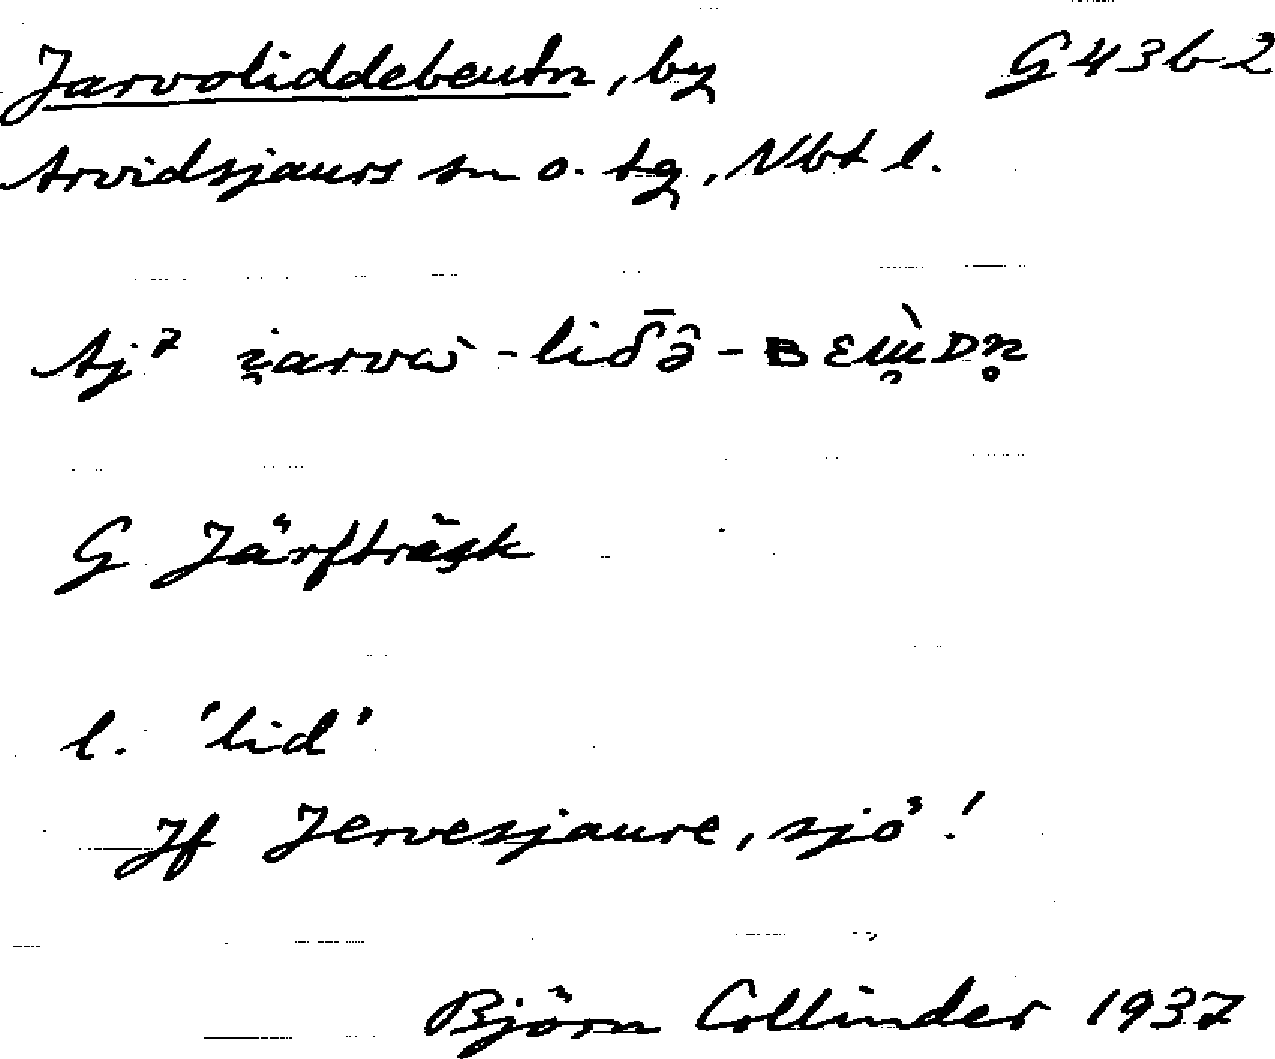 Jarvoliddebeutn, by G43b2
Arvidsjaurs sn o. tg, Nbt l.
Aj⁷ i̯arvὼ-liδ̄ə̑-ʙɛɯ̯̀ᴅn̥
G Järfträsk
l. 'lid'
Jf Jervesjaure, sjö!
Björn Collinder 1937